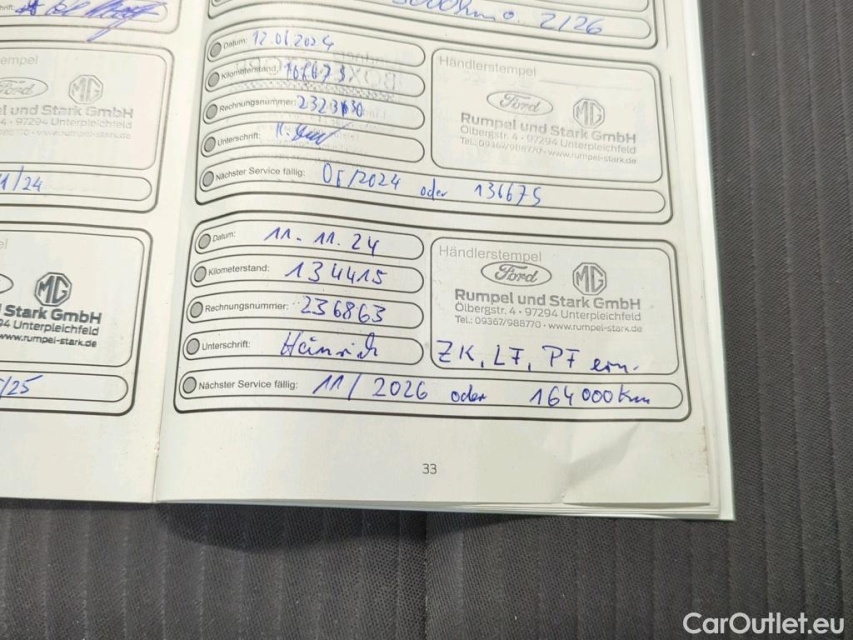 2/26
Datum: 12.06.2024
Kilometerstand:
Rechnungsnummer:
Unterschrift:
Nächster Service fällig: 06/2024 oder 136675
Händlerstempel
Ford MG
Rumpel und Stark GmbH
Ölbergstr. 4 • 97294 Unterpleichfeld
Tel.: 09367/988770 • www.rumpel-stark.de
Datum: 11.11.24
Kilometerstand: 134415
Rechnungsnummer: 236863
Unterschrift: Heinrich
Nächster Service fällig: 11/2026 oder 164000km
Händlerstempel
Ford MG
Rumpel und Stark GmbH
Ölbergstr. 4 • 97294 Unterpleichfeld
Tel.: 09367/988770 • www.rumpel-stark.de
ZK, LF, PF ern.
Ford MG
pel und Stark GmbH
4 • 97294 Unterpleichfeld
1/24
MG
Stark GmbH
94 Unterpleichfeld
www.rumpel-stark.de
/25
33
CarOutlet.eu